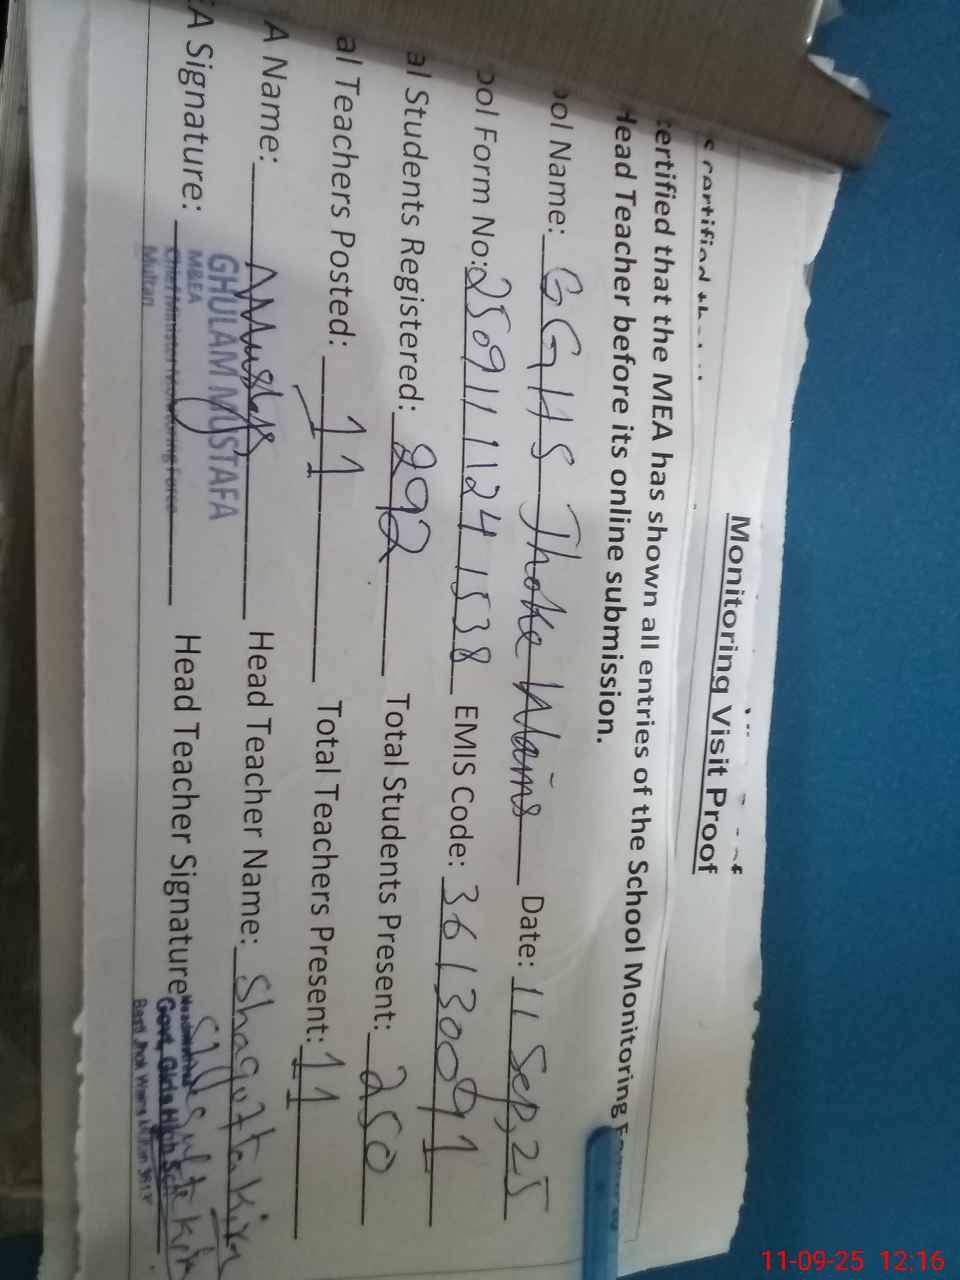 Monitoring Visit Proof
ertified that the MEA has shown all entries of the School Monitoring
Head Teacher before its online submission.
ool Name: GGHS Thoke Wains Date: 11 Sep, 25
ool Form No: 250911124 1538 EMIS Code: 36130091
al Students Registered: 292 Total Students Present: 250
al Teachers Posted: 11 Total Teachers Present: 11
A Name: Head Teacher Name: Shagufta
GHULAM MUSTAFA
M&EA
Chief Minister Monitoring Force
Multan
A Signature: Head Teacher Signature
Govt. Girls High Sch
11-09-25 12:16